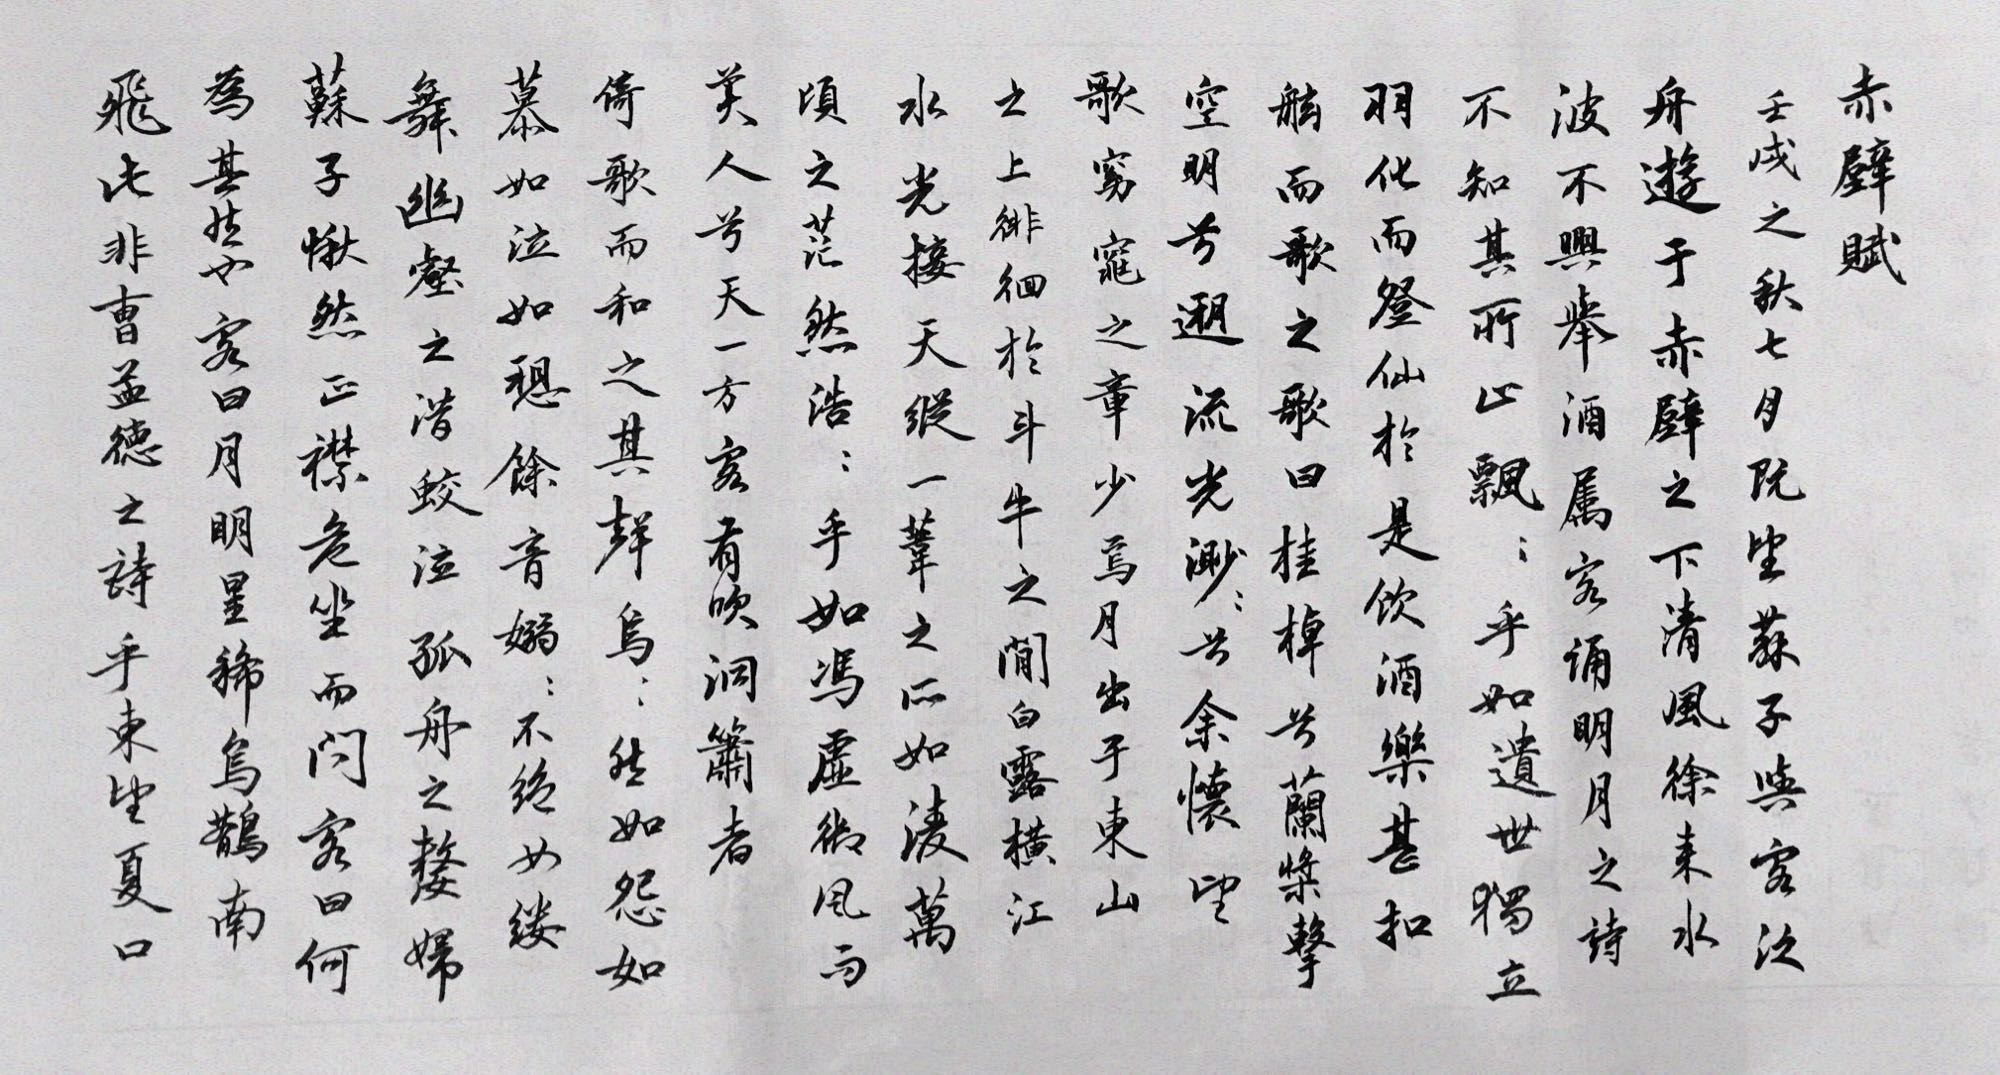 赤壁賦
壬戌之秋七月既望蘇子與客泛
舟遊于赤壁之下清風徐来水
波不興舉酒属客誦明月之詩
不知其所止飄:乎如遺世獨立
羽化而登仙於是飲酒樂甚扣
舷而歌之歌曰桂棹兮蘭槳擊
空明兮遡流光渺:兮余懷望
歌窈窕之章少焉月出于東山
之上徘徊於斗牛之間白露橫江
水光接天縱一葦之所如淩萬
頃之茫然浩:乎如馮虛御風而
美人兮天一方客有吹洞簫者
倚歌而和之其聲烏:然如怨如
慕如泣如愬餘音嫋:不絕如縷
舞幽壑之潛蛟泣孤舟之嫠婦
蘇子愀然正襟危坐而問客曰何
為其然也客曰月明星稀烏鵲南
飛此非曹孟德之詩乎東望夏口